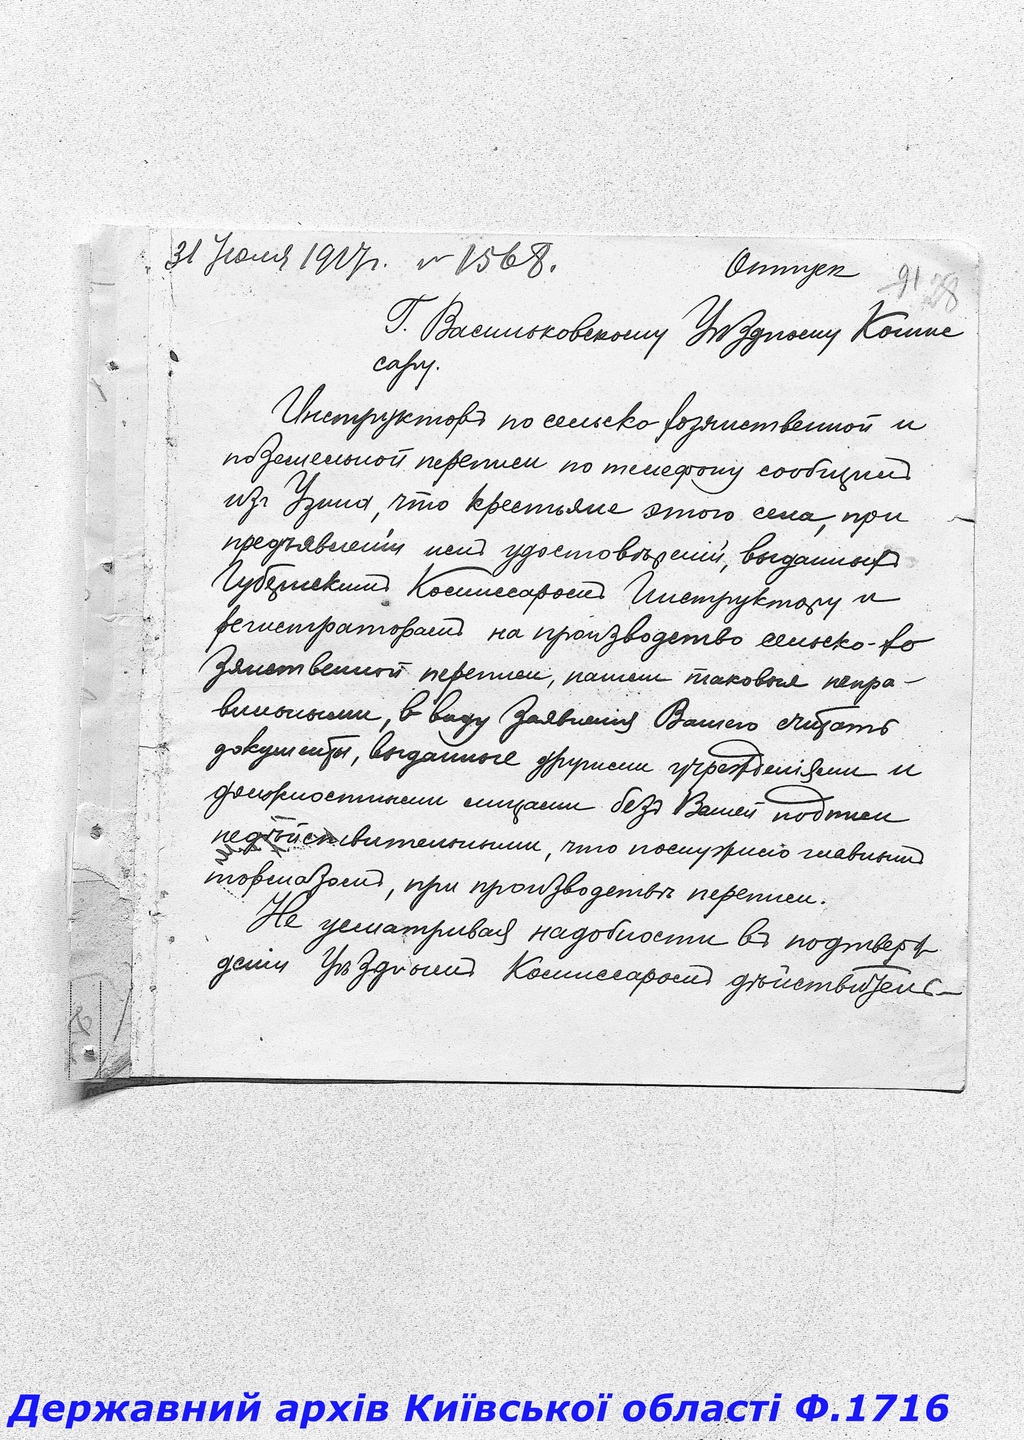 31 Июля 1917г. № 1568.
Отпуск
91 28
Г. Васильковскому Уѣздному Комис
сару.
Инструкторъ по сельско-хозяиственной и
поземельной переписи по телефону сообщилъ
изъ Узина, что крестьяне этого села, при
предъявленіи имъ удостовѣреній, выданныхъ
Губернскимъ Комиссаромъ Инструктору и
регистраторамъ на производство сельско-хо
зяиственной переписи, нашли таковыя непра-
вильными, въ виду заявленія Вашего считать
документы, выданные другими учрежденіями и
должностными лицами безъ Вашей подписи
недѣйствительными, что послужило главнымъ
тормазомъ, при производствѣ переписи.
Не усматривая надобности въ подтверж
деніи Уѣзднымъ Комиссаромъ дѣйствитель-
Державний архів Київської області Ф.1716